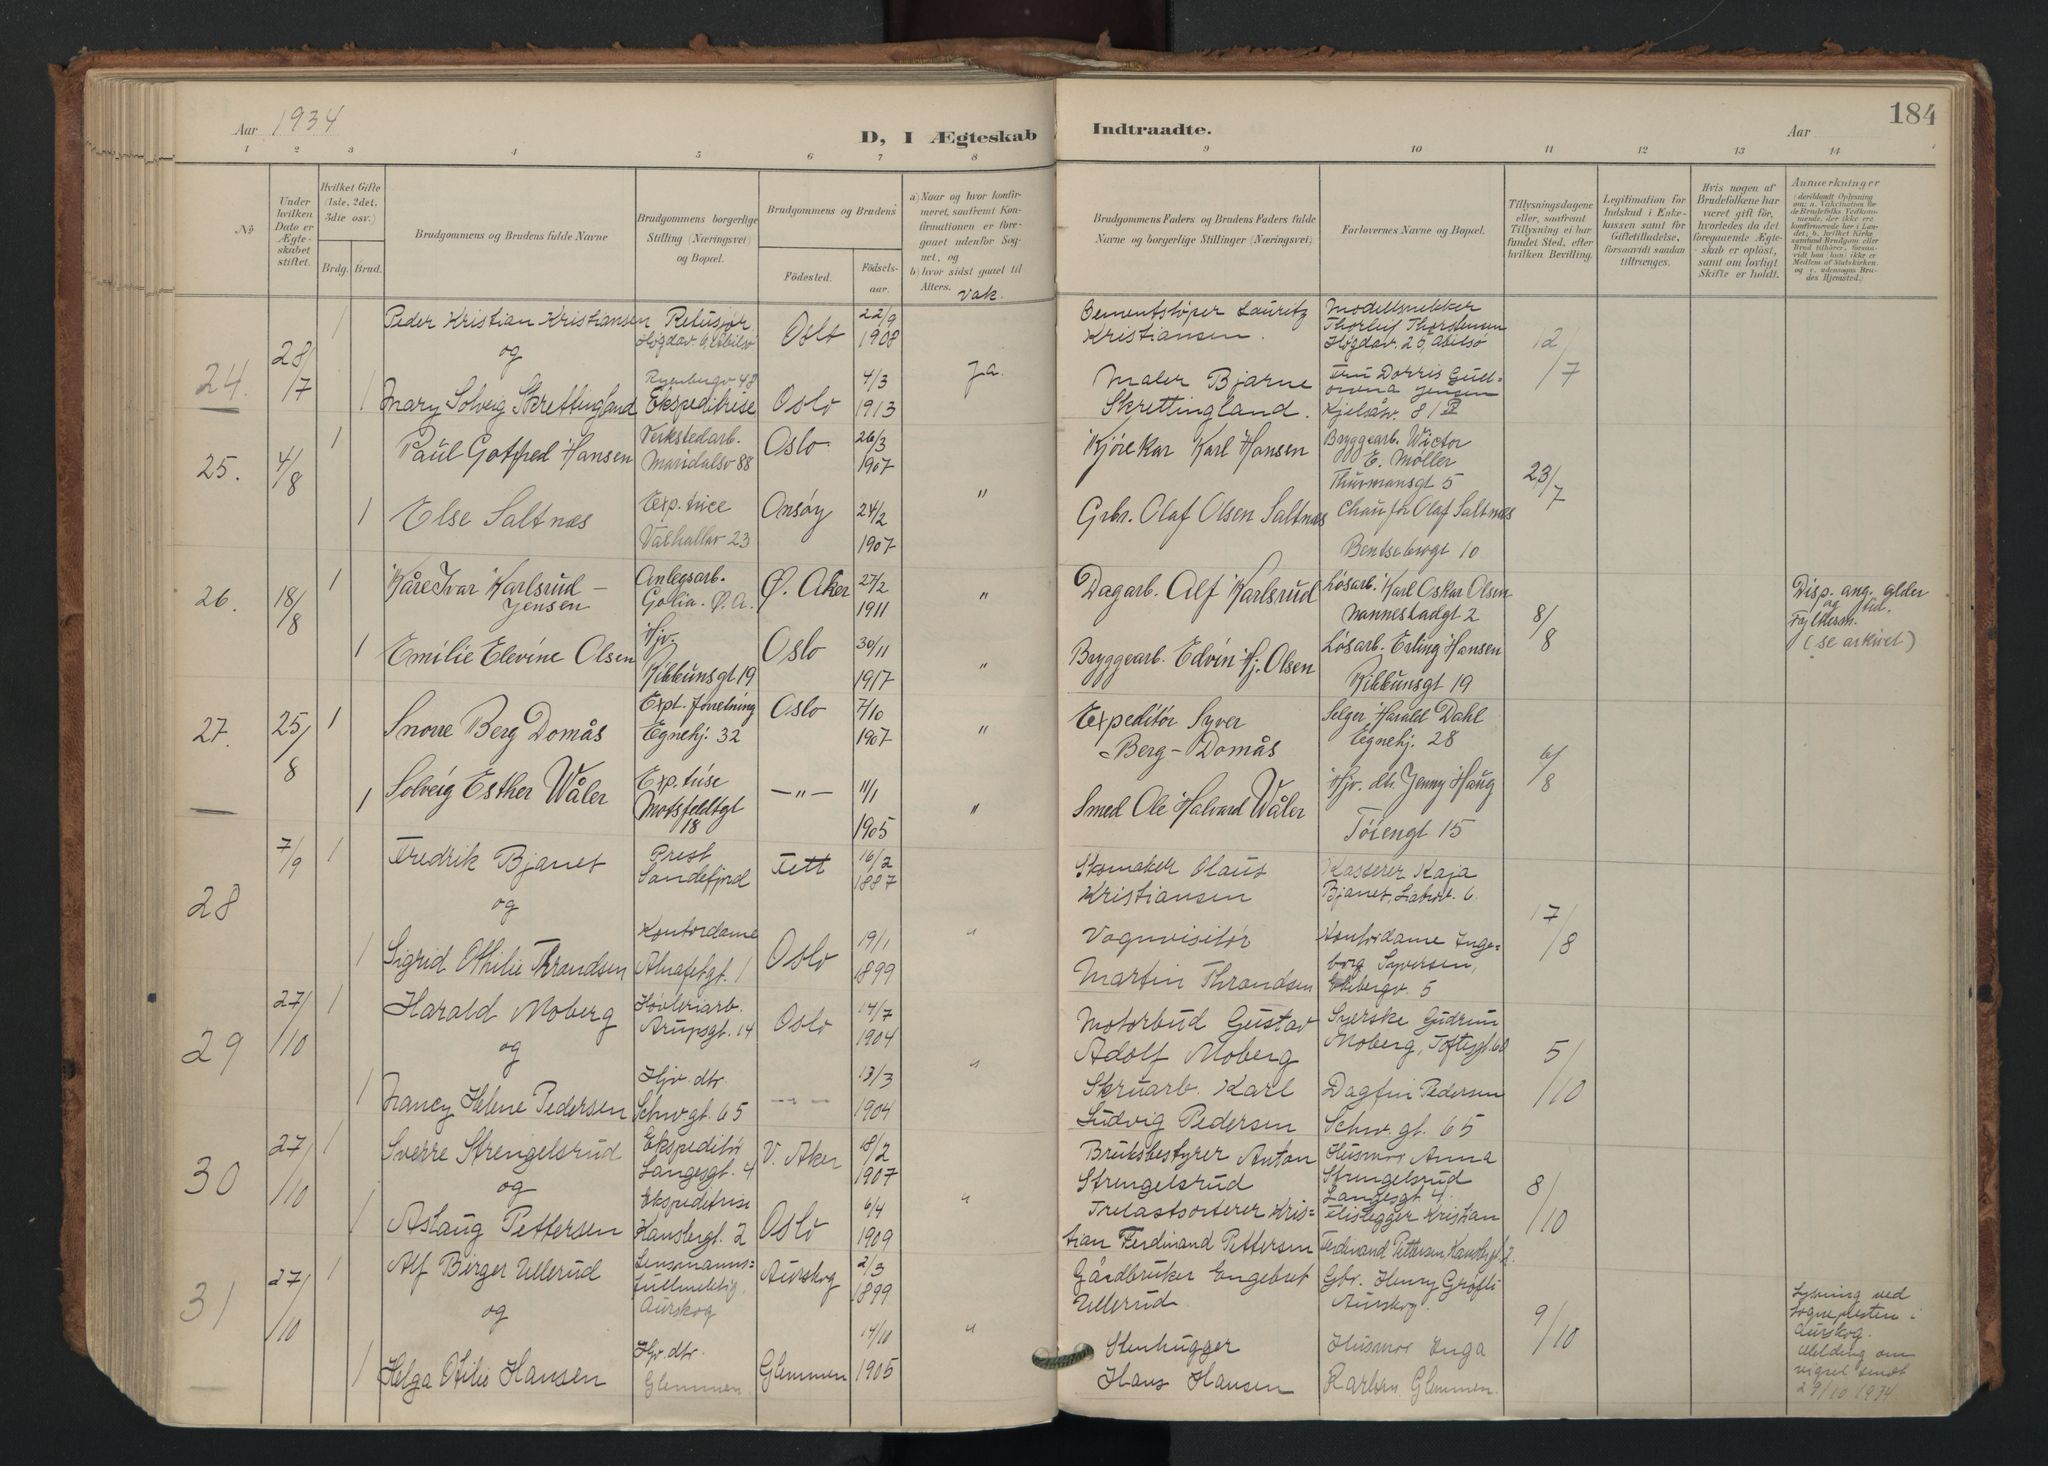 Aar 1934
D, I Ægteskab
Indtraadte.
Aar
184
1 2 3 4 5 6 7 8
9 10 11 12 13 14
No
Under hvilken Dato er Ægteskabet stiftet.
Hvilket Gifte (1ste, 2det, 3die osv.)
Brdg. Brud.
Brudgommens og Brudens fulde Navne
Brudgommens borgerlige Stilling (Næringsvei) og Bopæl.
Brudgommens og Brudens
Födested.
Födselsaar.
a) Naar og hvor konfirmeret, saafremt Konfirmationen er foregaaet udenfor Sognet, og
b) hvor sidst gaaet til Alters.
vak.
Brudgommens Faders og Brudens Faders fulde Navne og borgerlige Stillinger (Næringsvei)
Forlovernes Navne og Bopæl.
Tillysningsdagene eller, saafremt Tillysning ei har fundet Sted, efter hvilken Bevilling.
Legitimation for Indskud i Enkekassen samt for Giftetilladelse, forsaavidt saadan tiltrænges.
Hvis nogen af Brudefolkene har været gift før, hvorledes da det foregaaende Ægteskab er oplöst, samt om lovligt Skifte er holdt.
Anmærkninger
24. 28/7 1 Peder Kristian Kristiansen Retusjør Oslo 22/9 1908
Cementstøper Lauritz Kristiansen. Modellsnekker Thorleif Thorstensen Høgdav. 25, Abilsø 12/7
og
1 Mary Solveig Skrettingland Ryenbergv 48 Ekspeditrise Oslo 4/3 1913 Ja.
Maler Bjarne Skrettingland. Fru Dorris Gudomena Jensen Kjelsåsv. 81
25. 4/8 1 Paul Gotfred Hansen Verkstedarb. Maridalsv 88 Oslo 26/3 1907
Kjørekar Karl Hansen Bryggearb. Wictor E. Møller Thurmansgt 5 23/7
1 Else Saltnæs Exp.trice Valhallav 23 Onsøy 24/2 1907 "
Grbr. Olaf Olsen Saltnæs Chaufør Olaf Saltnæs Bentsebrogt 10
26. 18/8 1 Kåre Ivar Karlsrud-Jensen Anlegsarb. Golia. Ø. A. Ø. Aker 27/2 1911 "
Dagarb. Alf Karlsrud Løsarb. Karl Oskar Olsen Mannestadgt 2 8/8
Disp. ang. alder
(se arkivet)
1 Emilie Elevine Olsen Hjv. Oslo 30/11 1917 "
Bryggearb. Edvin Hj. Olsen Løsarb. Erling Hansen
27. 25/8 1 Snorre Berg Domås Expt. forretning Egnehj. 32 Oslo 7/10 1907 "
Expeditør Syver Berg-Domås Selger Harald Dahl Egnehj. 28 6/8
1 Solveig Esther Wåler Exp.trise Motsfeldtgt 18 -"- 11/1 1905 "
Smed Ole Halvard Wåler Hjv. dtr. Jenny Haug Tøiengt 15
28 7/9 1 Fredrik Bjanet Prest Sandefjord Fett 16/2 1887
Skomaker Olaus Kristiansen Kasserer Kaja Bjanet, 17/8
og
1 Sigrid Othilie Thrandsen Kontordame Oslo 19/1 1899 "
Vognvisitør Martin Thrandsen Kontordame Ingeborg Syversen, Ekebergv. 5
29 27/10 1 Harald Moberg Høvleriarb. Arupsgt. 14 Oslo 14/7 1904
Motorbud Gustav Adolf Moberg Syerske Gudrun Moberg, Toftesgt. 60 5/10
og
1 Nancy Helene Pedersen Hjv. dtr. Schw.gt. 65 -"- 13/3 1904 "
Skruarb. Karl Ludvig Pedersen Dagfin Pedersen Schw. gt. 65
30 27/10 1 Sverre Strengelsrud Ekspeditør Langesgt. 4 V. Aker 18/2 1907
Bruksbestyrer Anton Strengelsrud Husmor Anna Strengelsrud Langesgt. 4. 8/10
og
1 Aslaug Pettersen Ekspeditrise Kansbergt. 2 Oslo 6/4 1909 "
Trelastsorterer Kristian Ferdinand Pettersen Flislegger Kristian Ferdinand Pettersen Kansbergt. 2.
31 27/10 1 Alf Birger Ullerud Lensmannsfullmektig, Aurskog Aurskog 2/3 1899
Gårdbruker Engebret Ullerud Gbr. Henry Aurskog. 9/10
og
1 Helga Otilie Hansen Hjv. dtr. Glemmen. Glemmen 14/10 1905 "
Stenhugger Hans Hansen Husmor Inga Karlsen Glemmen.
Lysning ved sognepresten i Aurskog. Melding om vigsel sendt 29/10 1934